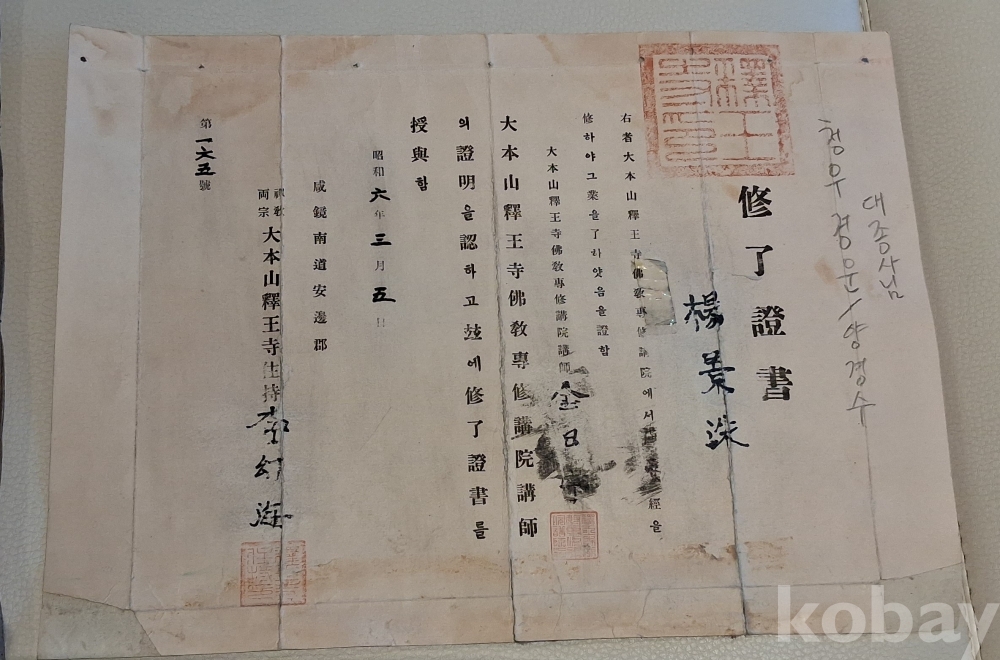 청우 경운 / 양경수
대종사님
修了證書
楊景洙
右者大本山釋王寺佛教專修講院에서 經을
修하야그業을了하얏음을證함
大本山釋王寺佛教專修講院講師 金日
大本山釋王寺佛教專修講院講師
의證明을認하고玆에修了證書를
授與함
昭和六年三月五日
咸鏡南道安邊郡
禪教両宗 大本山釋王寺住持 李幻海
第一六五號
kobay